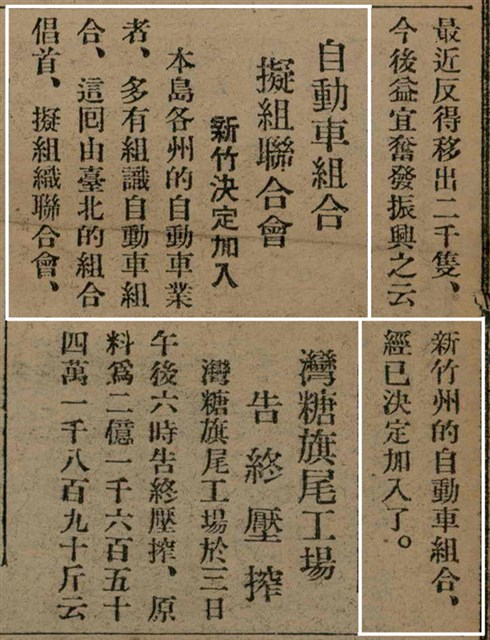 最近反得移出二千隻、
今後益宜奮發振興之云
自動車組合
擬組聯合會
新竹決定加入
本島各州的自動車業
者、多有組識自動車組
合、這回由臺北的組合
倡首、擬組織聯合會、
新竹州的自動車組合、
經已決定加入了。
灣糖旗尾工場
告終壓搾
灣糖旗尾工場於三日
午後六時告終壓搾、原
料爲二億一千六百五十
四萬一千八百九十斤云